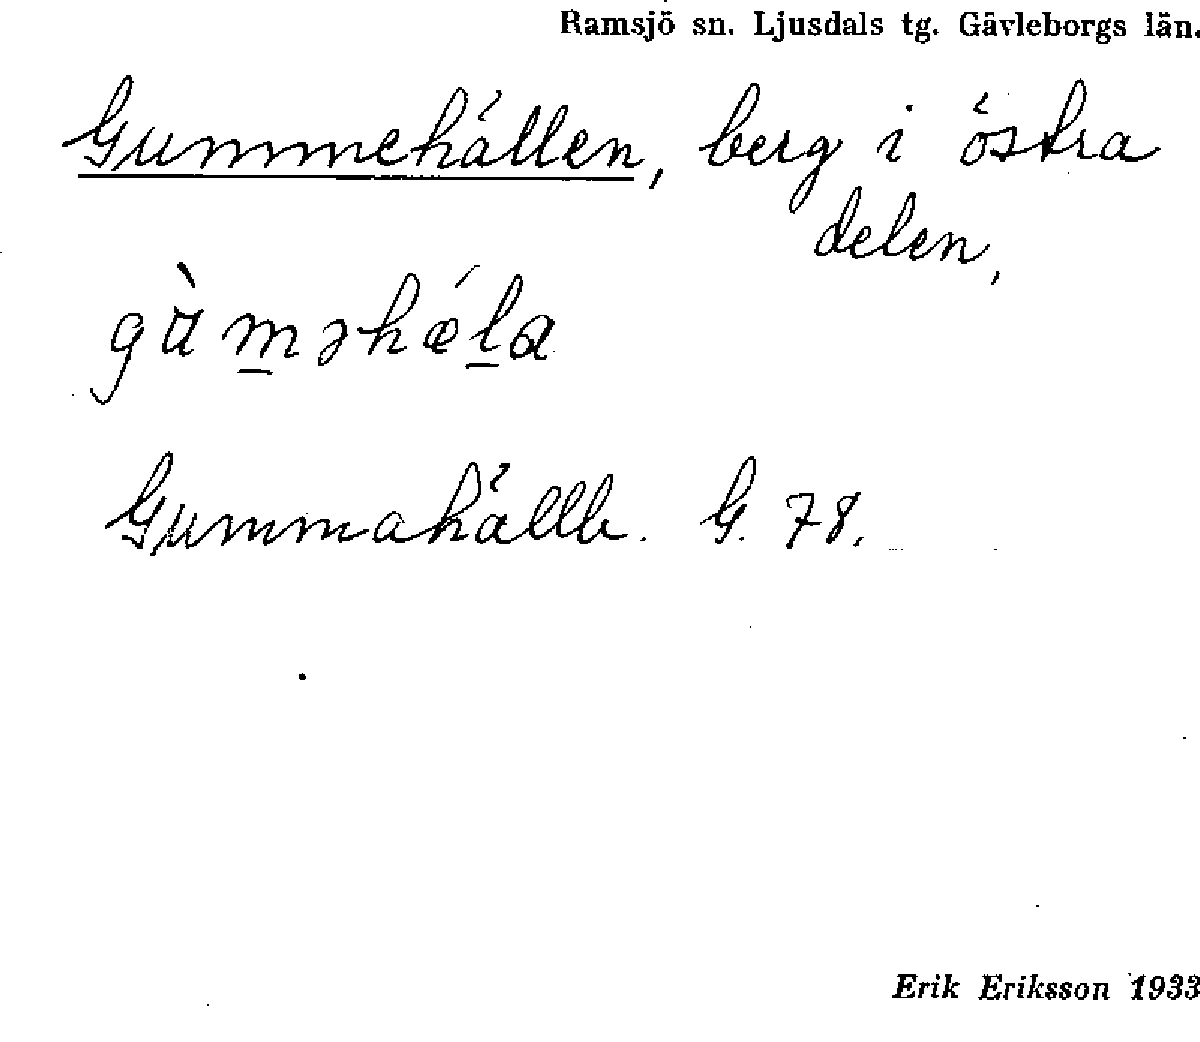 Ramsjö sn. Ljusdals tg. Gävleborgs län.
Gummehällen, berg i östra
delen,
gàm̲əhǽl̲a
Gummahällb. G. 78.
Erik Eriksson 1933